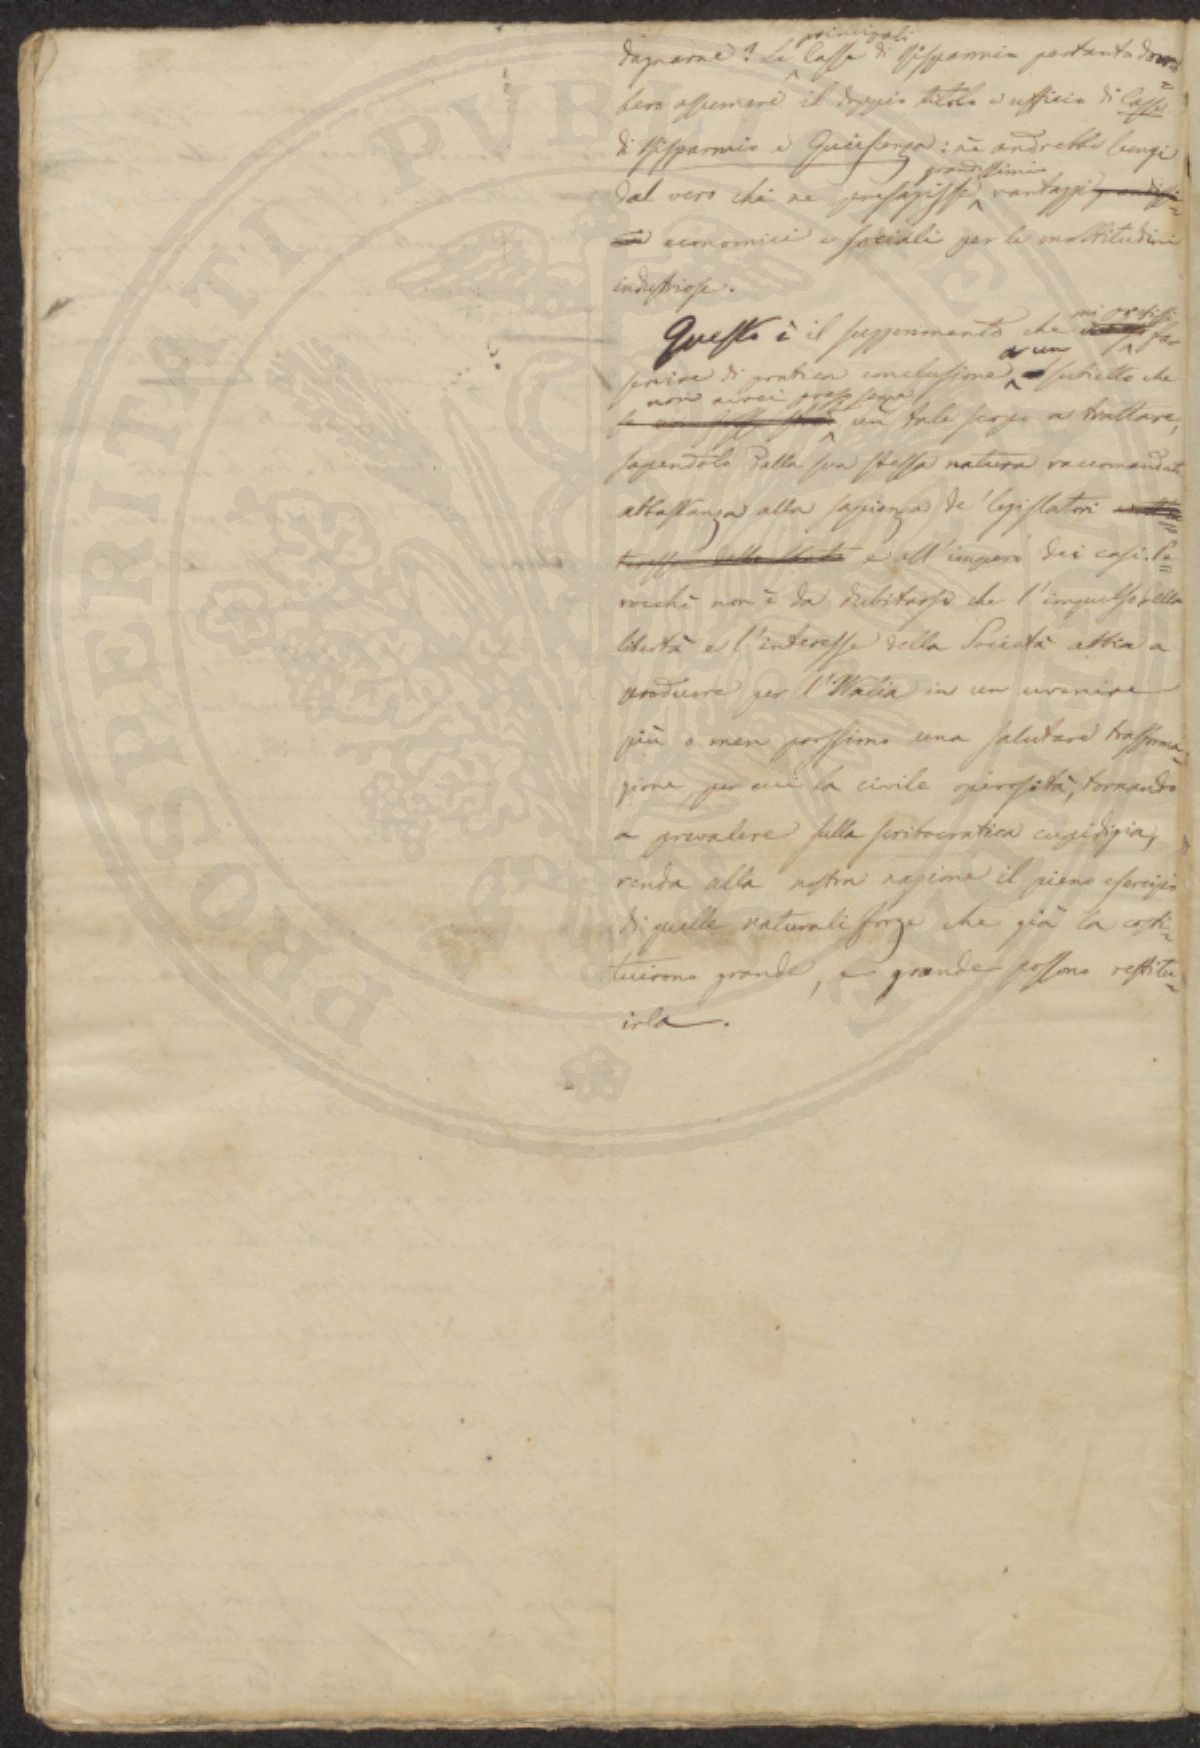 dagnarne? Le principali Casse di Risparmio pertanto dovreb=
bero assumere il doppio titolo e ufficio di Casse
di Risparmio e Quiescenza: nè andrebbe lungi
dal vero chi ne presagisse grandissimi vantaggi grandissi=
mi economici e sociali per le moltitudini
industriose.
Questo è il suggerimento che mi permisi far
servire di pratica conclusione a un subietto che
non avrei preso senza un tale scopo a trattare,
sapendolo dalla sua stessa natura raccomandato
abbastanza alla sapienza de' legislatori
e all'impero dei casi. Pe=
rocchè non è da dubitarsi che l'impulso della
libertà e l'interesse della Società abbia a
produrre per l'Italia in un avvenire
più o men prossimo una salutare trasforma=
zione per cui la civile operosità, tornando
a prevalere sulla scribocratica cupidigia,
renda alla nostra nazione il pieno esercizio
di quelle naturali forze che già la costi=
tuirono grande, e grande possono restitu=
irla.
PROSPERITATI PVBLICAE